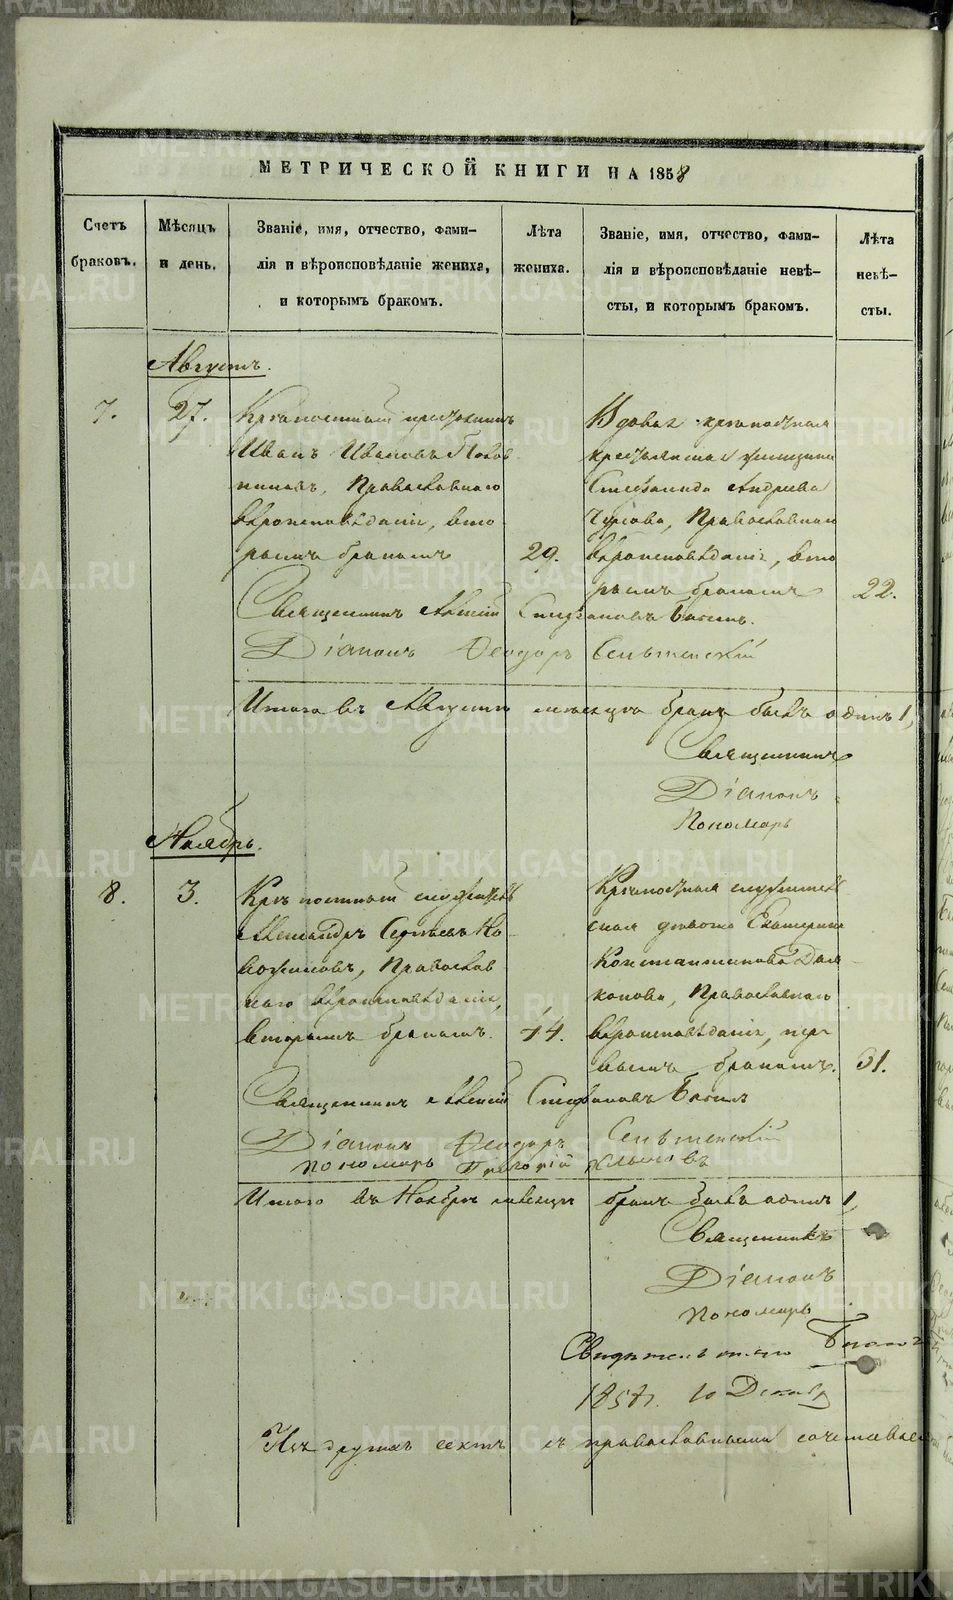 МЕТРИЧЕСКОЙ КНИГИ НА 1858
Счетъ браковъ.
Мѣсяцъ и день.
Званіе, имя, отчество, фами-
лія и вѣроисповѣданіе жениха,
и которымъ бракомъ.
Лѣта жениха.
Званіе, имя, отчество, фами-
лія и вѣроисповѣданіе невѣ-
сты, и которымъ бракомъ.
Лѣта невѣ-
сты.
Августъ.
7.
27.
Крѣпостный крестьянинъ
Иванъ Ивановъ
Православнаго
вѣроисповѣданія, вто-
рымъ бракомъ
29.
Вдова крѣпостная
крестьянская женщина
Степанида Андреева
Православнаго
вѣроисповѣданія, вто
рымъ бракомъ
22.
Священникъ Алексій Стефановъ
Діаконъ Ѳеодоръ
Итого въ Августѣ мѣсяцѣ бракъ былъ одинъ 1,
Священникъ
Діаконъ
Пономарь
Ноябрь.
8.
3.
Крѣпостный служитель
Александръ Сергѣевъ Но
вожиловъ, Православ
наго вѣроисповѣданія,
вторымъ бракомъ.
44.
Крѣпостная служитель
ская Екатерина
Константинова
Православнаго
вѣроисповѣданія, пер
вымъ бракомъ.
31.
Священникъ Алексій Стефановъ
Діаконъ Ѳеодоръ
Пономарь Григорій
Итого въ Ноябрѣ мѣсяцѣ бракъ былъ одинъ 1,
Священникъ
Діаконъ
Пономарь
Свидѣтельствовалъ
1858 г. 10 Декабр
Изъ другихъ сектъ съ православными
METRIKI.GASO-URAL.RU